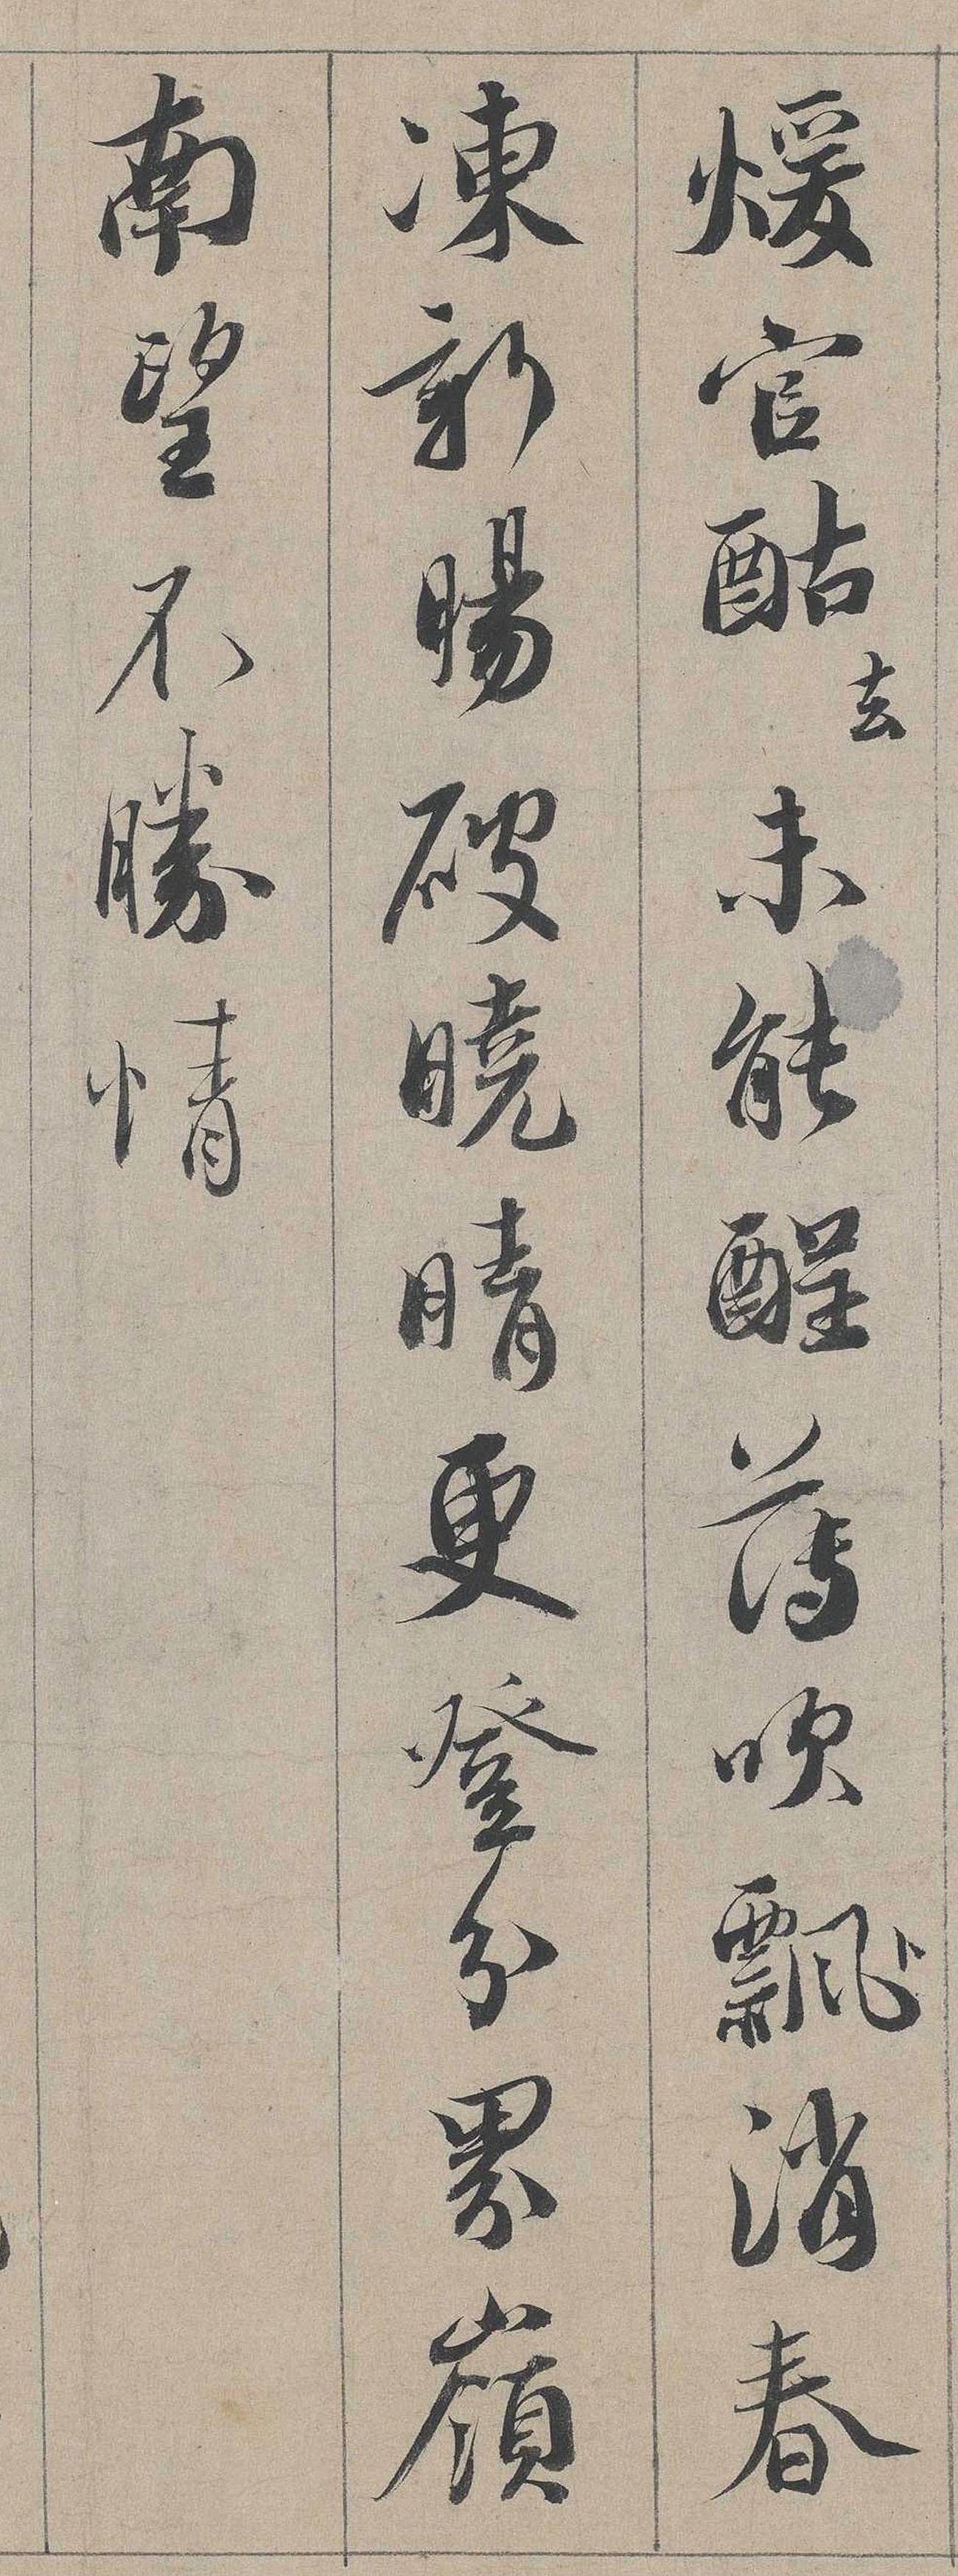 煖官酤去未能醒薄吹飄消春
凍新暘破曉晴更登分界嶺
南望不勝情